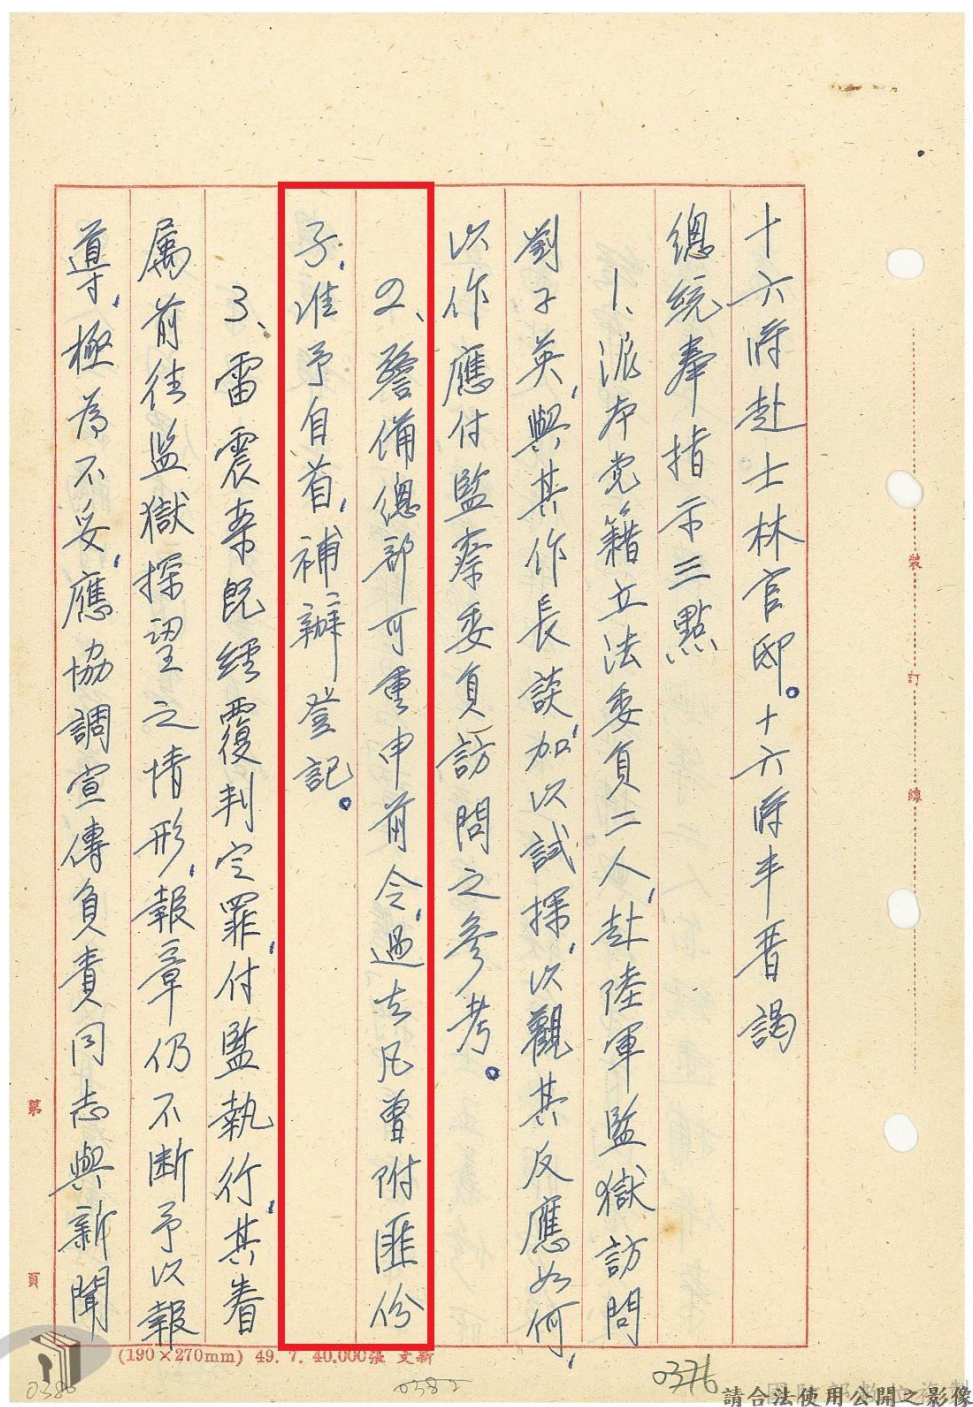 十六時赴士林官邸。十六時半晉謁
總統奉指示三點
1、派本党籍立法委員二人,赴陸軍監獄訪問
劉子英,與其作長談,加以試探,以觀其反應如何,
以作應付監察委員訪問之參考。
2、警備總部可重申前令,過去凡曾附匪份
子,准予自首,補辦登記。
3、雷震案既經覆判定罪,付監執行,其眷
屬前往監獄探望之情形,報章仍不断予以報
導,極為不妥,應協調宣傳負責同志與新聞
裝
訂
線
第
頁
(190×270mm) 49.7.40.000張 文新
0380
0382
0376
請合法使用公開之影像